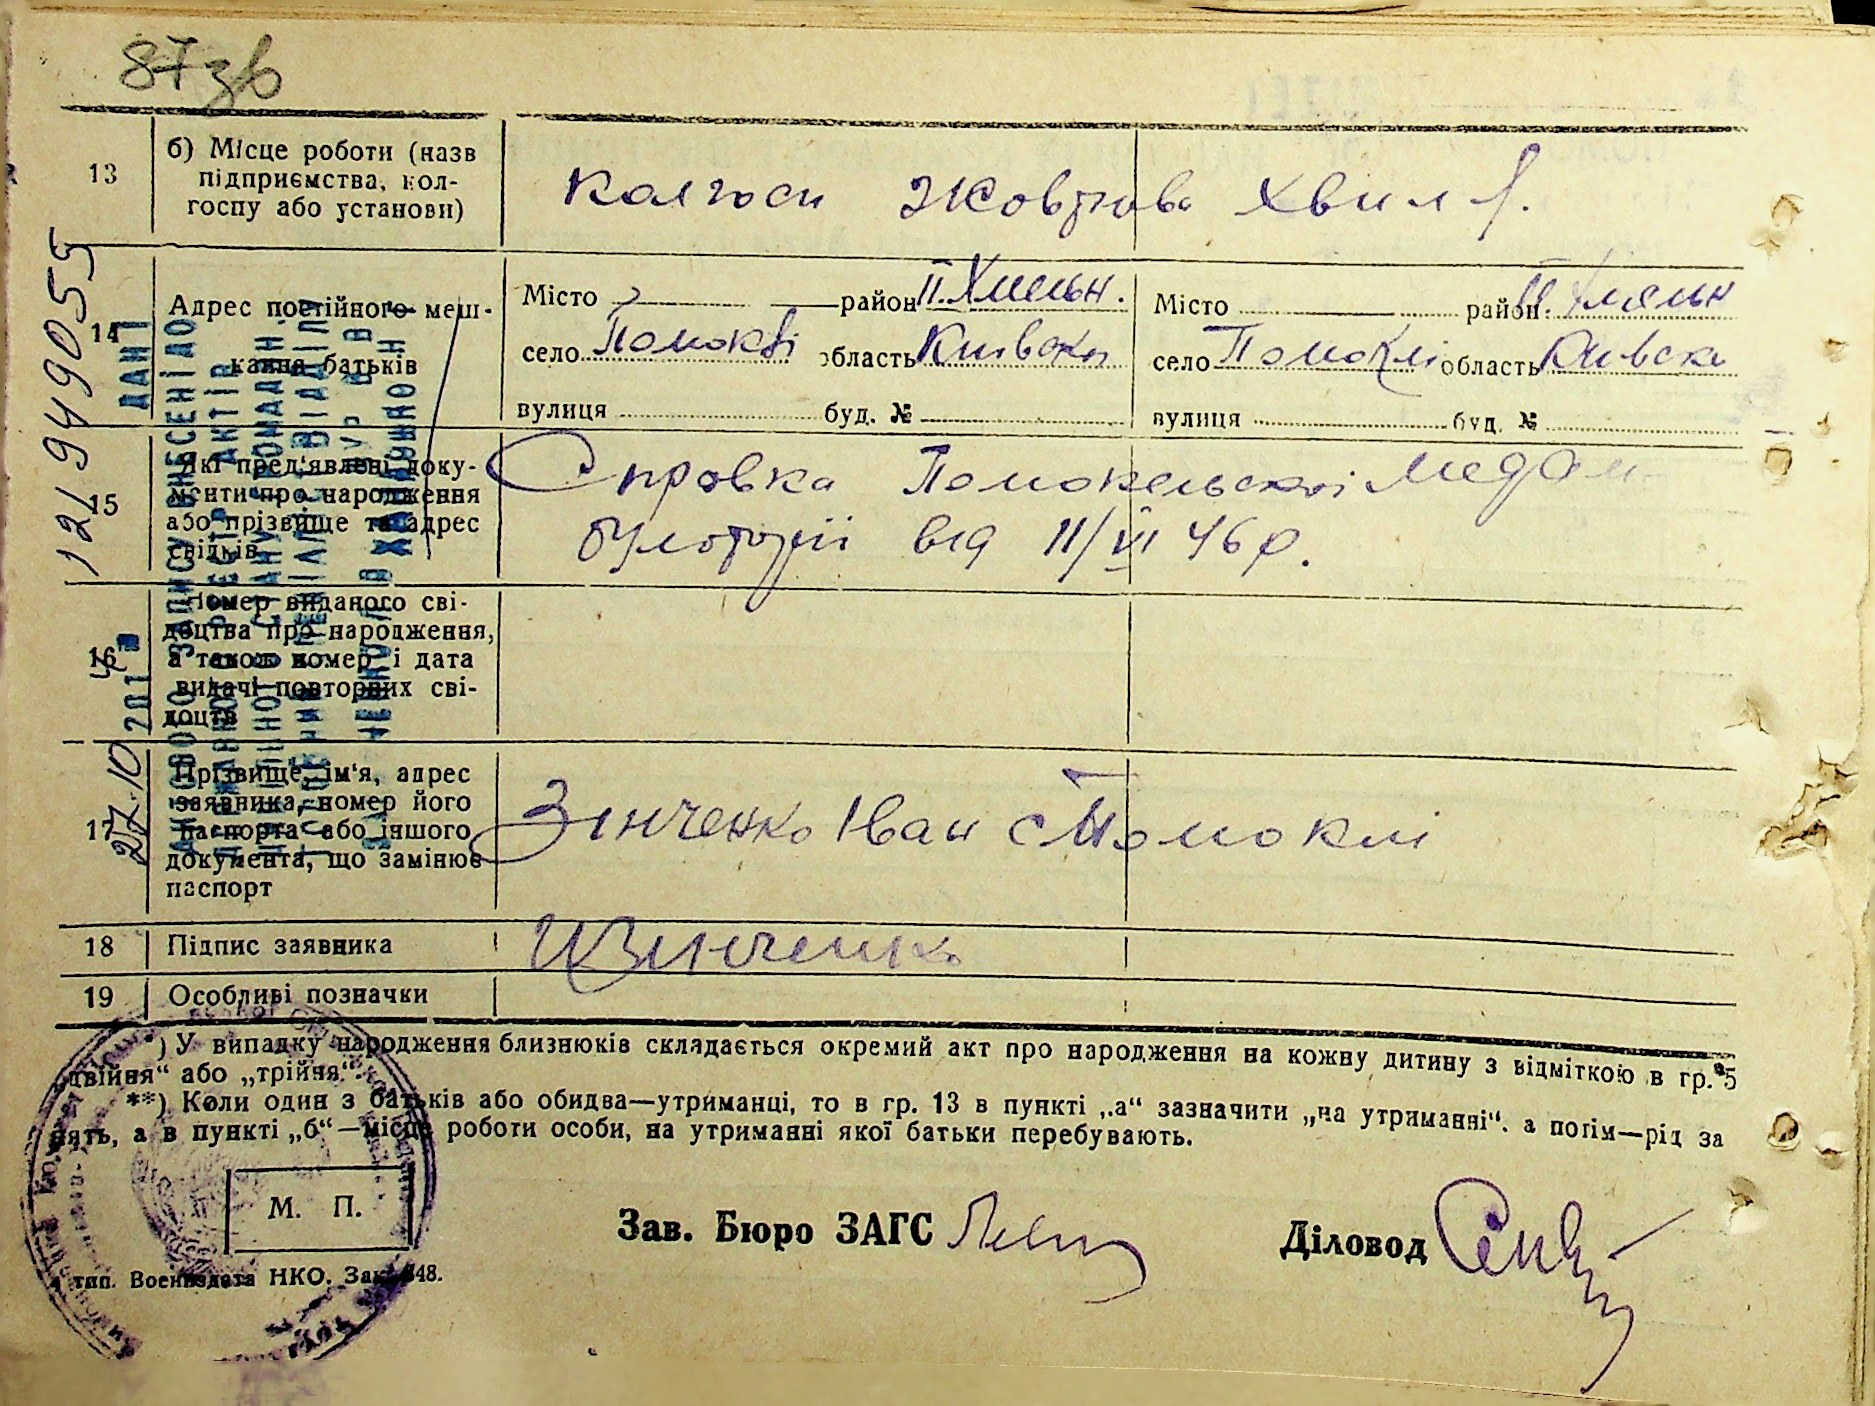 87зв
13
б) Місце роботи (назв
підприємства, кол-
госпу або установи)
Колгосп Жовтнева Хвиля.
14
Адрес постійного меш-
кання батьків
Місто район П.Хмельн.
село Помоклі область Київська
вулиця буд. №
Місто район П.Хмельн
село Помоклі область Київська
вулиця буд. №
15
Які пред'явлені доку-
менти про народження
або прізвище та адрес
свідків
Справка Помокельської Медам
булоторії від 11/VI 46 р.
16
Номер виданого сві-
доцтва про народження,
а також номер і дата
видачі повторних сві-
доцтв
17
Прізвище, ім'я, адрес
заявника, номер його
паспорта або іншого
документа, що замінює
паспорт
Зінченко Іван с Помоклі
18
Підпис заявника
ИЗинченко
19
Особливі позначки
*) У випадку народження близнюків складається окремий акт про народження на кожну дитину з відміткою в гр. 5
„двійня“ або „трійня“.
**) Коли один з батьків або обидва—утриманці, то в гр. 13 в пункті „а“ зазначити „на утриманні“, а потім—рід за
нять, а в пункті „б“—місце роботи особи, на утриманні якої батьки перебувають.
М. П.
Зав. Бюро ЗАГС
Діловод
тип. Воениздата НКО. Зак. 848.
ДАНІ
АКТОВОГО ЗАПИСУ ВНЕСЕНІ ДО
27.10 201